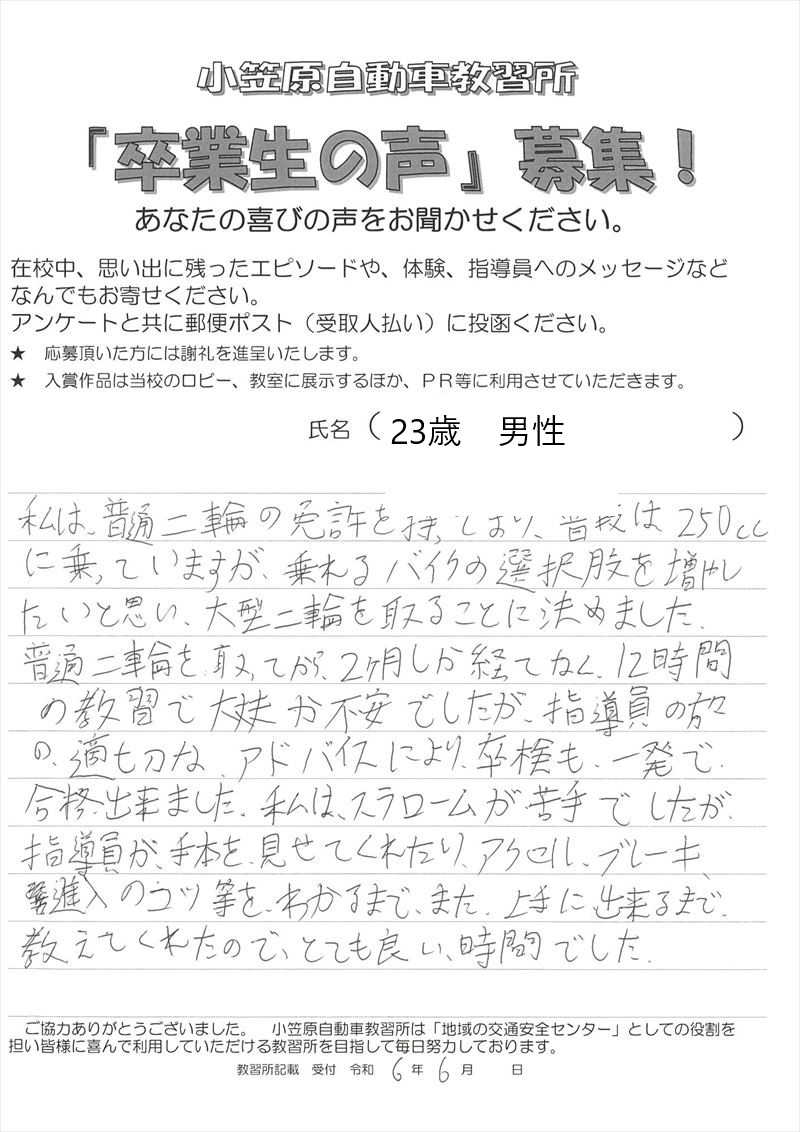 小笠原自動車教習所
「卒業生の声」募集！
あなたの喜びの声をお聞かせください。
在校中、思い出に残ったエピソードや、体験、指導員へのメッセージなど
なんでもお寄せください。
アンケートと共に郵便ポスト（受取人払い）に投函ください。
★ 応募頂いた方には謝礼を進呈いたします。
★ 入賞作品は当校のロビー、教室に展示するほか、ＰＲ等に利用させていただきます。
氏名（ 23歳 男性 ）
私は、普通二輪の免許を 持っており、普段は 250cc
に乗っていますが、乗れるバイクの選択肢を増やし
たいと思い、大型二輪を取ることに決めました。
普通二輪を、取ってから、2ヶ月しか経てなく、12時間
の教習で大丈夫か不安でしたが、指導員の方々
の、適切な、アドバイスにより、卒検も、一発で、
合格出来ました。私は、スラロームが苦手でしたが、
指導員が、手本を、見せてくれたり、アクセル、ブレーキ、
進入のコツ等を、わかるまで、また、上手に、出来るまで、
教えてくれたので、とても良い、時間でした。
ご協力ありがとうございました。 小笠原自動車教習所は「地域の交通安全センター」としての役割を
担い皆様に喜んで利用していただける教習所を目指して毎日努力しております。
教習所記載 受付 令和 6 年 6 月 日